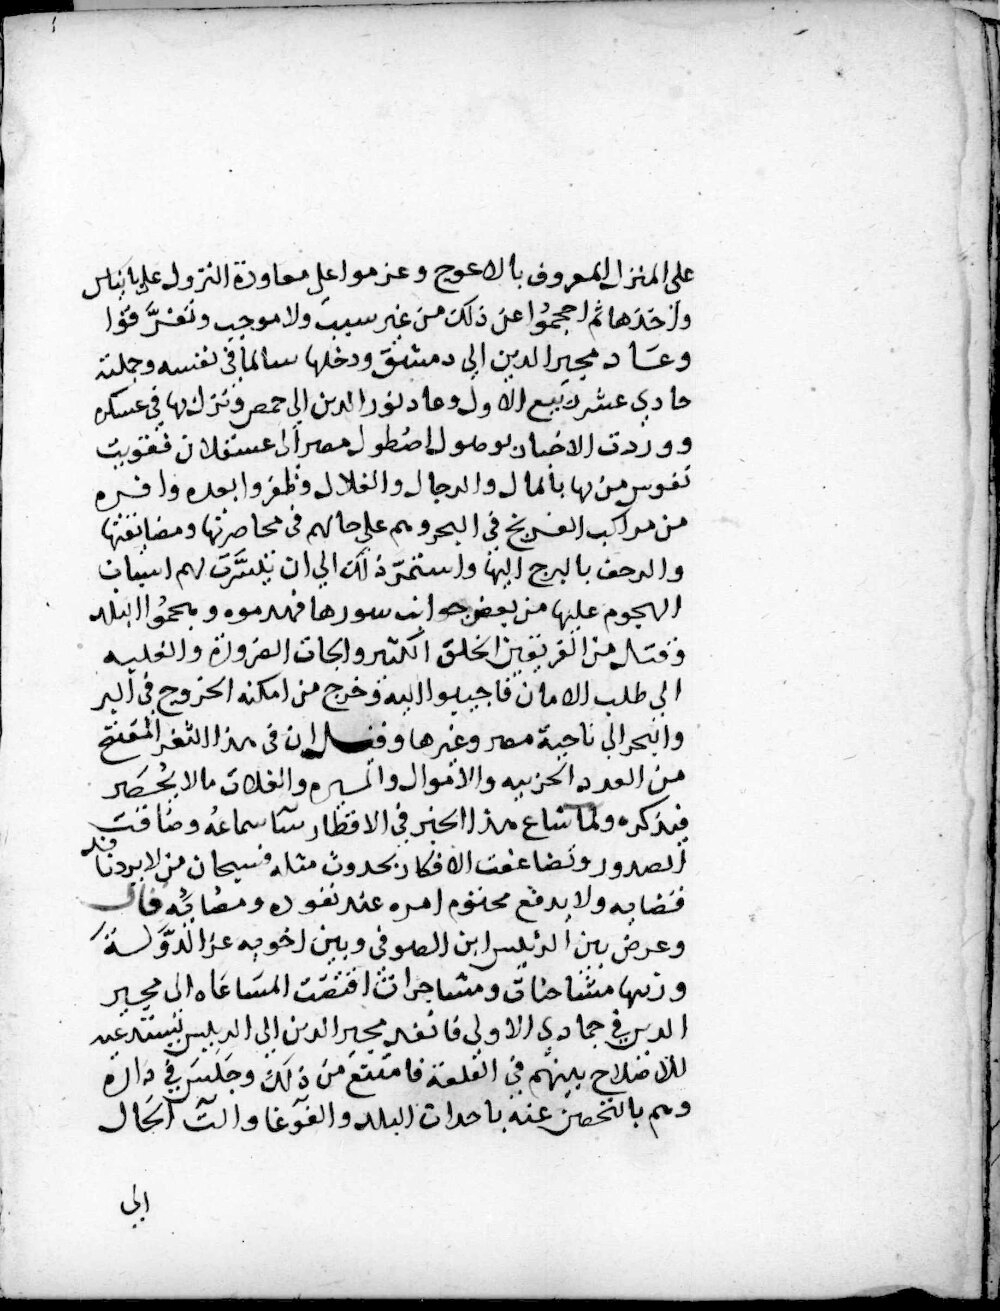 على المنزل المعروف بالاعوج وعزموا على معاودة النزول على بانياس
واخذها ثم احجموا عن ذلك من غير سبب ولا موجب وتفرقوا
وعاد مجير الدين الي دمشق ودخلها سالما في نفسه وجملته
حادي عشر ربيع الاول وعاد نور الدين الي حمص ونزل بها في عسكره
ووردت الاخبار بوصول اصطول مصر الى عسقلان فقويت
نفوس من بها بالمال والرجال والغلال وظفروا بعده وافره
من مراكب الفرنج في البحر وهم علي حالهم في محاصرتها ومضايقتها
والزحف بالبرج اليها واستمر ذلك الي ان تيسرت لهم اسباب
الهجوم عليها من بعض جوانب سورها فهدموه وهجموا البلد
وقتل من الفريقين الخلق الكثير والجات الضرورة والغلبه
الي طلب الامان فاجيبوا اليه وخرج من امكنه الخروج في البر
والبحر الي ناحية مصر وغيرها وقيل ان في هذا الثغر المفتتح
من العدد الحربيه والاموال والميره والغلات مالا يحصر
فيذكره ولما شاع هذا الخبر في الاقطار ساء سماعه وضاقت
الصدور وتضاعفت الافكار بحدوث مثله فسبحان من لا يرد نافذ
قضايه ولا يدفع محتوم امره عند نفوذه ومضائه قال
وعرض بين الرئيس ابن الصوفي وبين اخويه عز الدولة
وزينها مشاحنات ومشاجرات اقتضت المساعاه الى مجير
الدين في جمادي الاولي فانفد مجير الدين الي الرييس يستدعيه
للاصلاح بينهم في القلعة فامتنع من ذلك وجلس في داره
وهم بالتحصن عنه باحداث البلد والغوغا والت الحال
الي